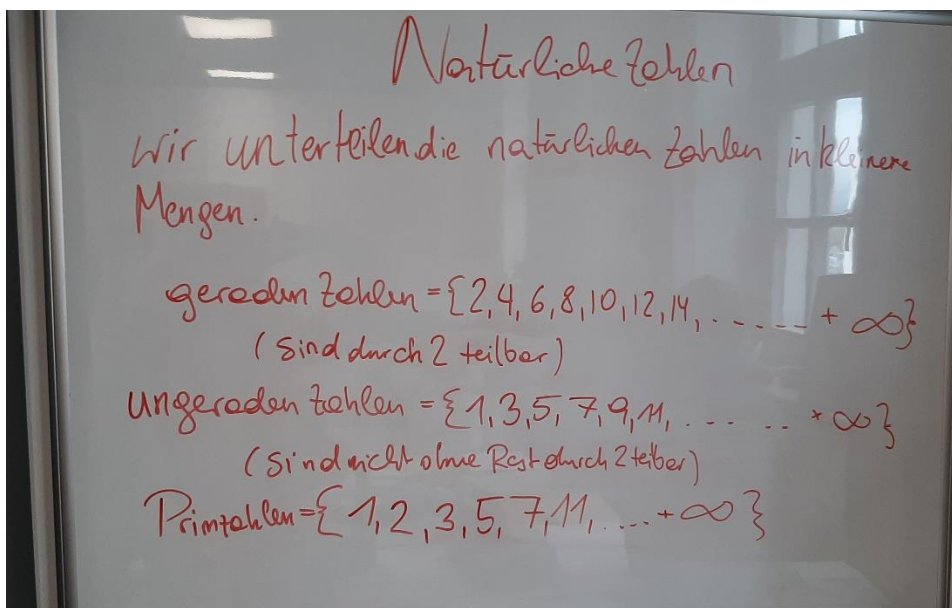 Natürliche Zahlen
Wir unterteilen die natürlichen Zahlen in kleinere
Mengen.
geraden Zahlen = {2,4,6,8,10,12,14, ..... + ∞}
(sind durch 2 teilbar)
ungeraden Zahlen = {1,3,5,7,9,11, ..... + ∞}
(sind nicht ohne Rest durch 2 teiber)
Primzahlen = { 1,2,3,5,7,11, .... +∞ }